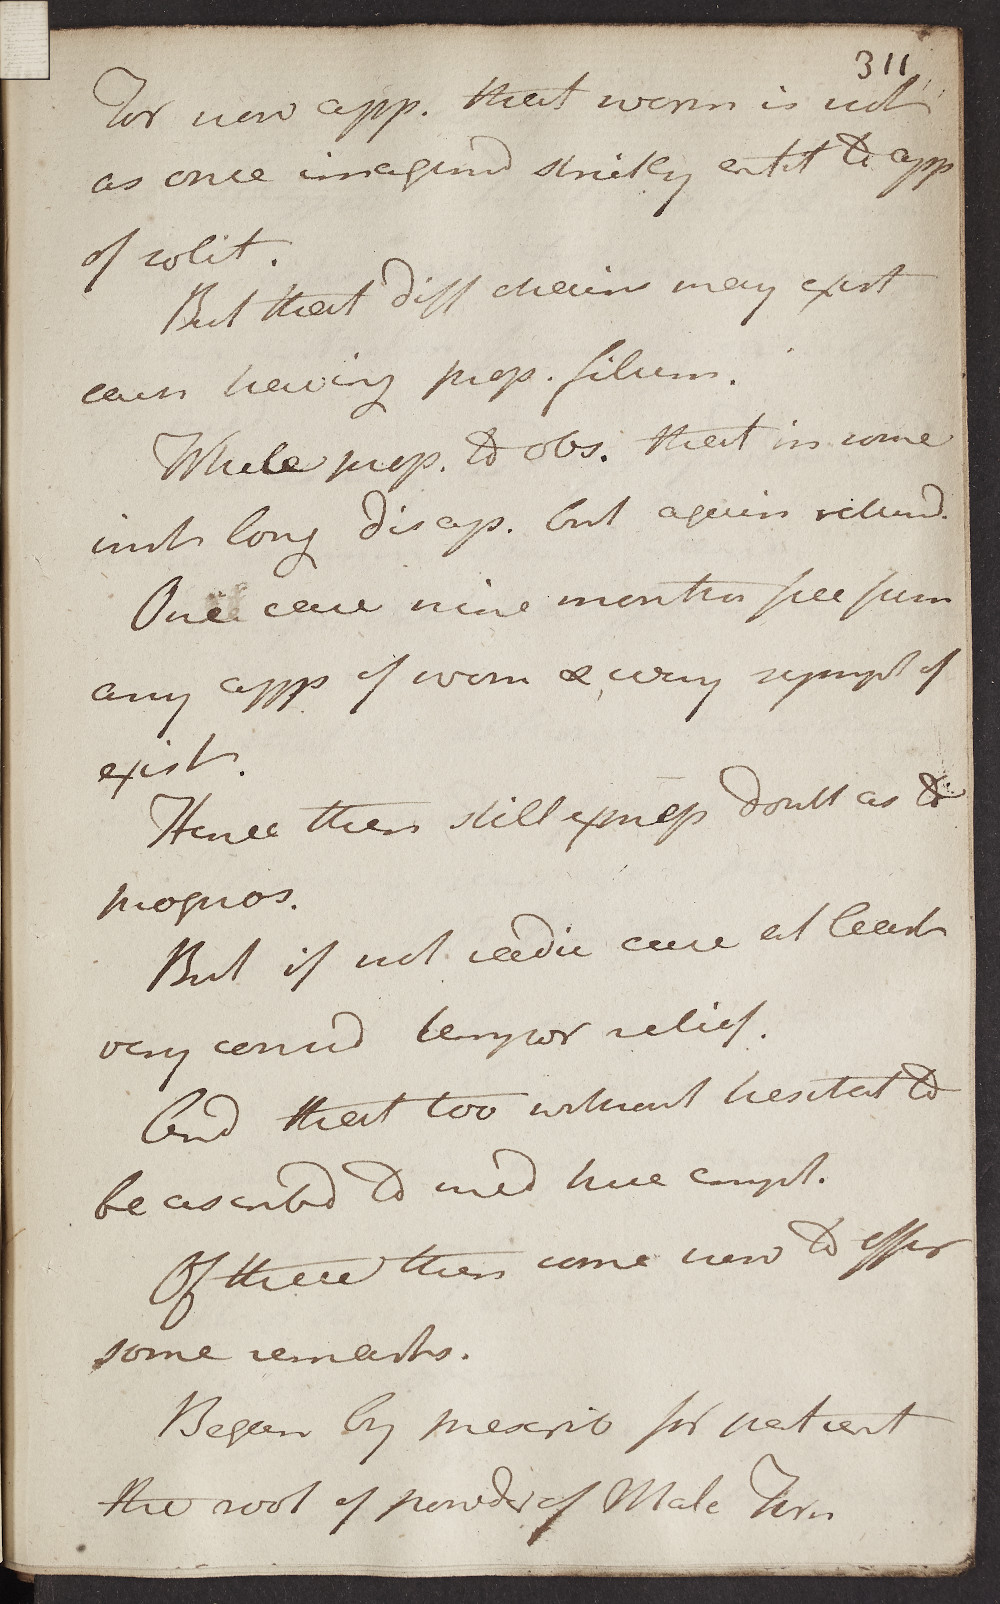 311
For now app. that worm is not
as once imagind strictly entit to app
of solit.
But that diff chains may exist
each having prop. filum.
While prop. to obs. that in some
inst long disap. but again returnd.
One case nine months free from
any app of worm & every sympt of
exist.
Hence then still express doubt as to
prognos.
But if not radic cure at least
very consid tempor relief.
And that too without hesitat to
be ascribd to med here empl.
Of these then come now to offer
some remarks.
Began by prescrib for patient
the root of powder of Male Fern